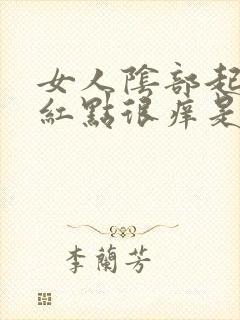 女人陰部起
紅點很痒是
李蘭芳